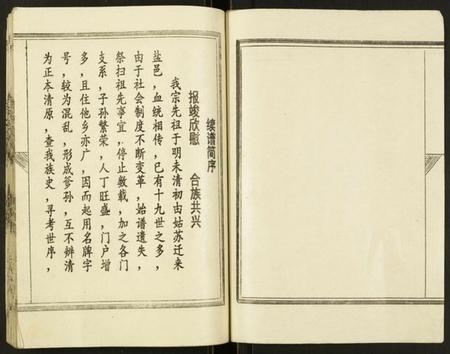 续谱简序
报竣欣慰 合族共兴
我宗先祖于明未清初由姑苏迁来
盐邑，血统相传，已有十九世之多，
由于社会制度不断变革，谱遗失，
祭扫祖先事宜，停止数载，加之各门
支系，子孙繁荣，人丁旺盛，门户增
多，且住他乡亦广，因而起用名牌字
号，较为混乱，形成爹孙，互不辨清
为正本清原，查我族史，寻考世序，